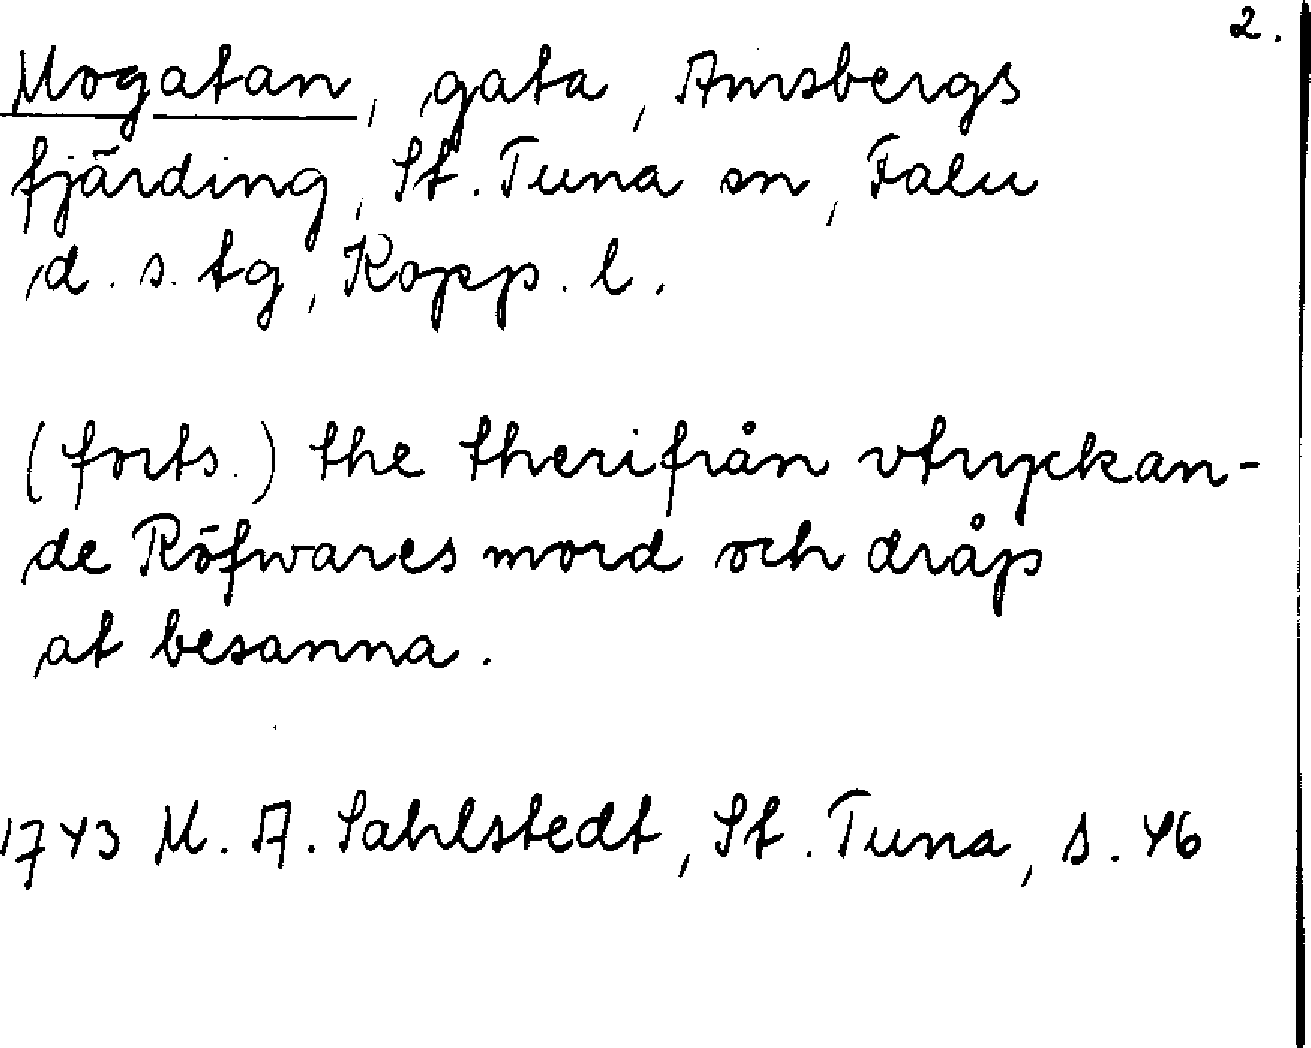 2.
Mogatan, gata, Amsbergs
fjärding, St. Tuna sn, Falu
d. s. tg, Kopp. l.
(forts.) the therifrån vtryckan-
de Röfwares mord och dråp
at besanna.
1743 M. A. Sahlstedt, St. Tuna, s. 46